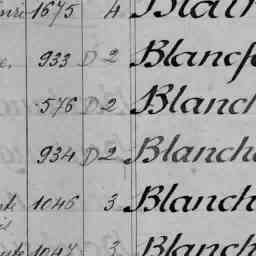 1675 4 Blair
933 D 2 Blancf
576 D 2 Blanch
934 D 2 Blanche
1046 3 Blanch
1047 3 Blanch